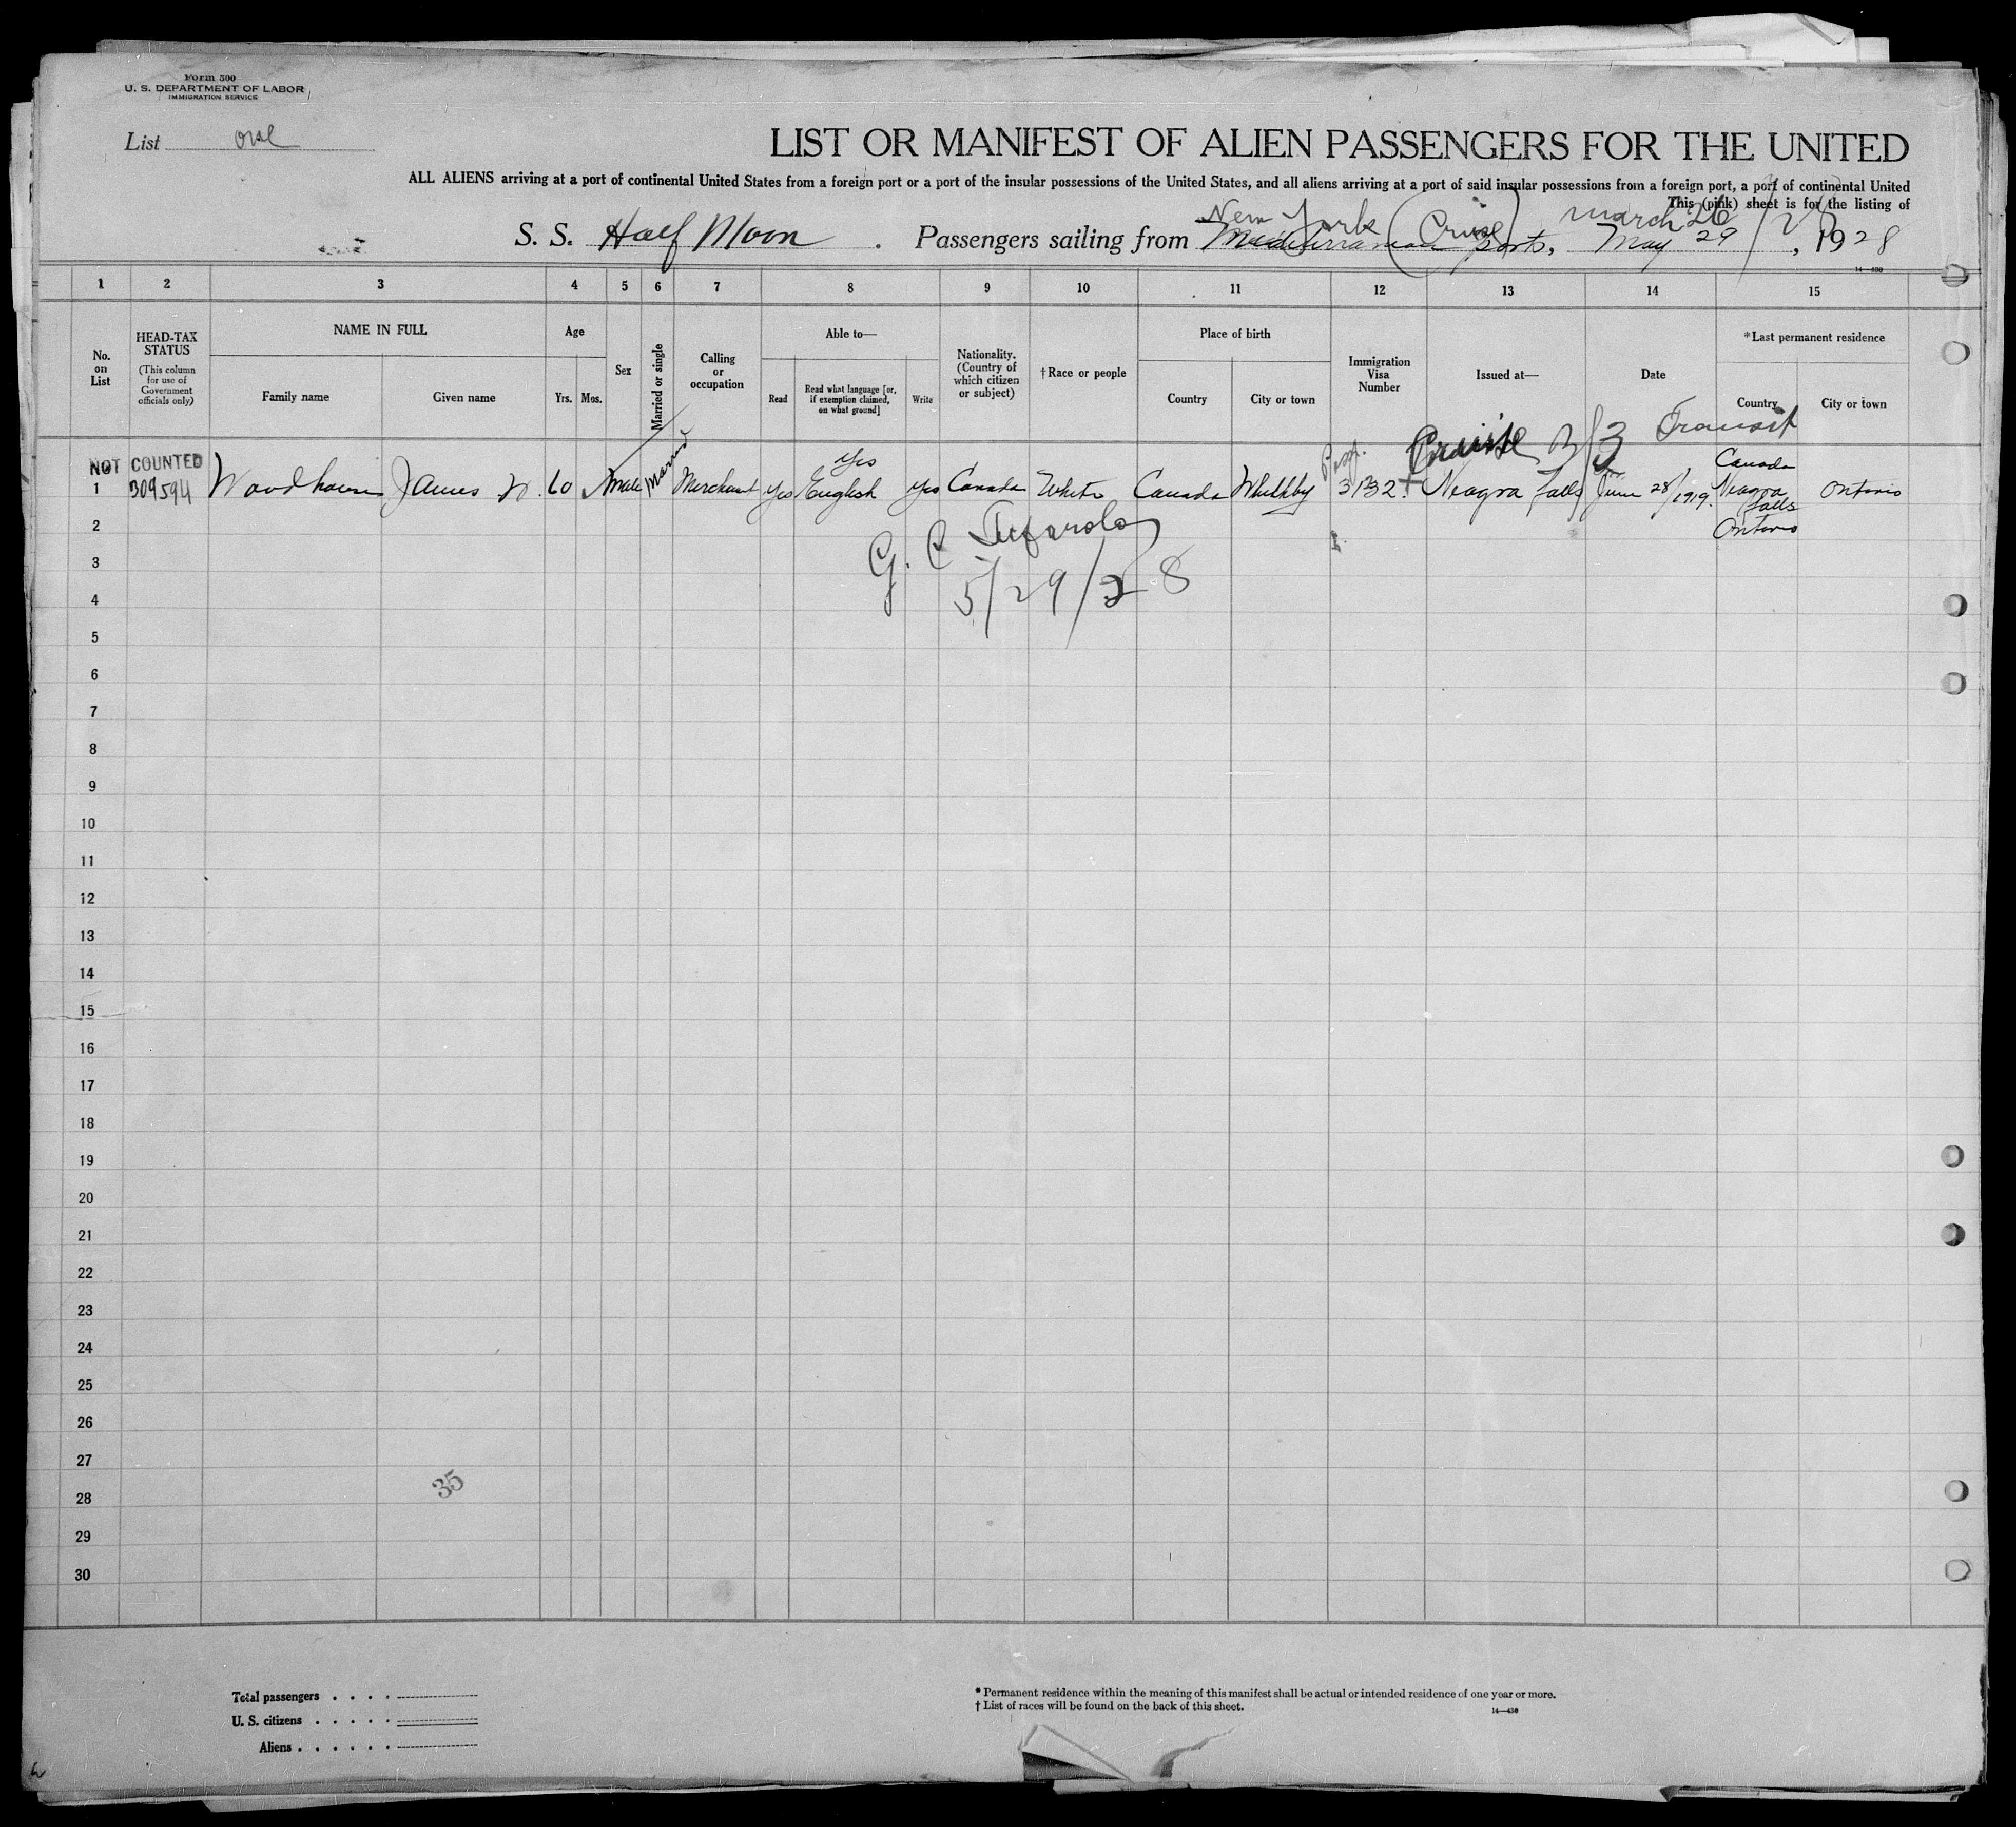 Form 500
U. S. DEPARTMENT OF LABOR
IMMIGRATION SERVICE
List one
LIST OR MANIFEST OF ALIEN PASSENGERS FOR THE UNITED
ALL ALIENS arriving at a port of continental United States from a foreign port or a port of the insular possessions of the United States, and all aliens arriving at a port of said insular possessions from a foreign port, a port of continental United
This (pink) sheet is for the listing of
New York (Cruise) March 26/28
S. S. Half Moon . Passengers sailing from Mediterranean Ports, May 29, 1928
14—430
1 2 3 4 5 6 7 8 9 10 11 12 13 14 15
No. on List
HEAD-TAX STATUS
(This column for use of Government officials only)
NAME IN FULL
Family name
Given name
Age
Yrs.
Mos.
Sex
Married or single
Calling or occupation
Able to—
Read
Read what language [or, if exemption claimed, on what ground]
Write
Nationality. (Country of which citizen or subject)
† Race or people
Place of birth
Country
City or town
Immigration Visa Number
Issued at—
Date
* Last permanent residence
Country
City or town
Cruise Transit
NOT COUNTED
1 309594 Woodhouse James W. 60 Male Married Merchant Yes Yes English Yes Canada White Canada Whithby 3132 Neagra Falls June 28/1919. Canada Neagra Falls Ontario Ontario
G. C.
5/29/28
2
3
4
5
6
7
8
9
10
11
12
13
14
15
16
17
18
19
20
21
22
23
24
25
26
27
35
28
29
30
Total passengers . . . .
U. S. citizens . . . . .
Aliens . . . . . .
* Permanent residence within the meaning of this manifest shall be actual or intended residence of one year or more.
† List of races will be found on the back of this sheet.
14—430